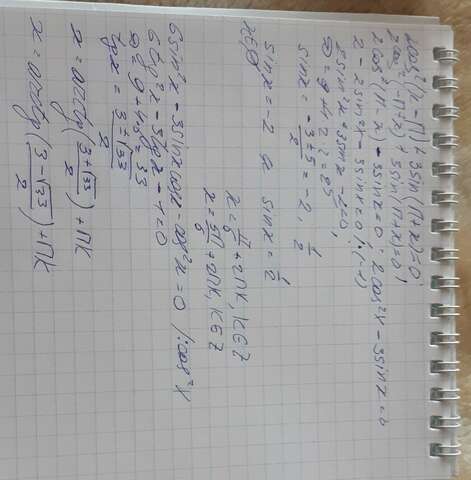 2cos²(x-π)+3sin(π+x)=0;
2cos²(-π+x)+3sin(π+x)=0;
2cos²(π-x)-3sinx=0; 2cos²x-3sinx=0
2-2sin²x-3sinx=0 |·(-1)
2sin²x+3sinx-2=0;
D=9+4·2·2=25
sinx = (-3±5)/2 = -2, 1/2
sinx=-2 и sinx=1/2
x∈∅
x=π/6+2πk, k∈Z
x=5π/6+2πk, k∈Z
6sin²x-3sinxcosx-cos²x=0 |:cos²x
6tg²x-3tgx-1=0
D=9+4·6=33
tgx=(3±√33)/2
x=arctg((3+√33)/2)+πk
x=arctg((3-√33)/2)+πk